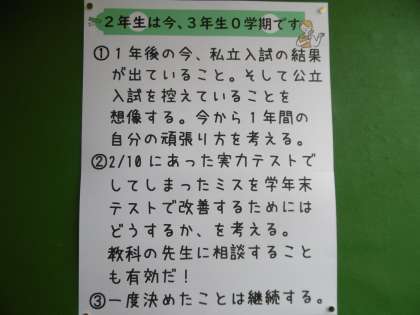 2年生は今、3年生0学期です
①1年後の今、私立入試の結果
が出ていること。そして公立
入試を控えていることを
想像する。今から1年間の
自分の頑張り方を考える。
②2/10にあった実力テストで
してしまったミスを学年末
テストで改善するためには
どうするか、を考える。
教科の先生に相談すること
も有効だ!
③一度決めたことは継続する。